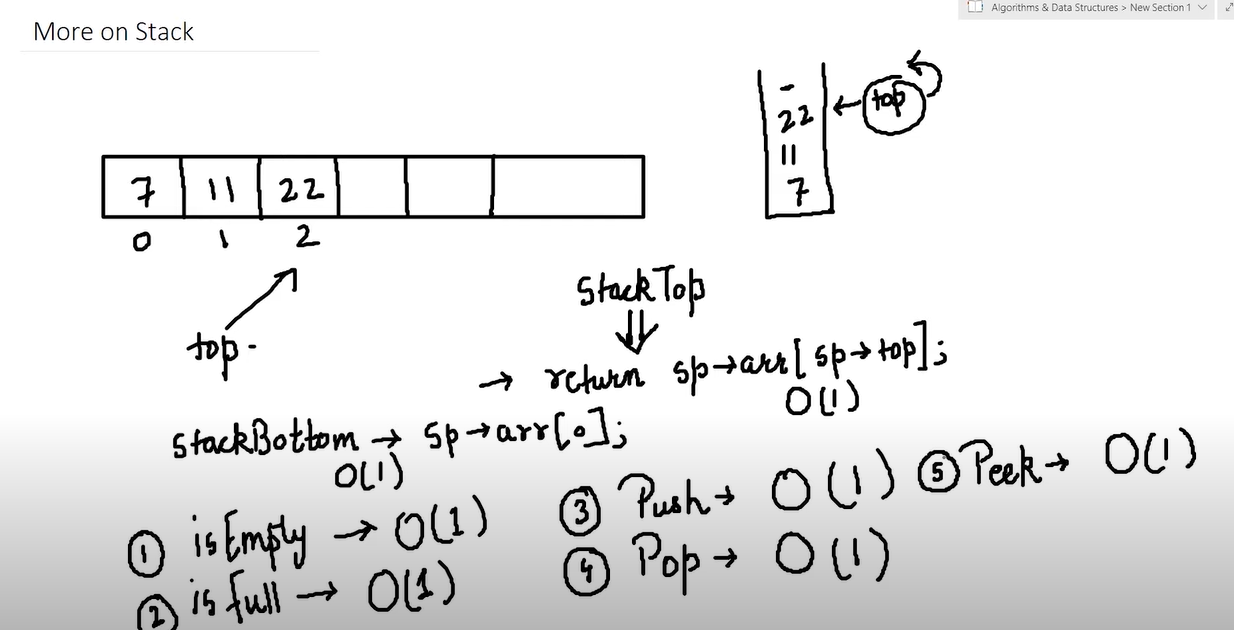 Algorithms & Data Structures > New Section 1
More on Stack
-
22 ← top
11
7
7 11 22
0 1 2
top -
StackTop
⇓
→ return sp→arr[sp→top];
O(1)
StackBottom → sp→arr[0];
O(1)
① isEmpty → O(1)
② is full → O(1)
③ Push → O(1)
④ Pop → O(1)
⑤ Peek → O(1)